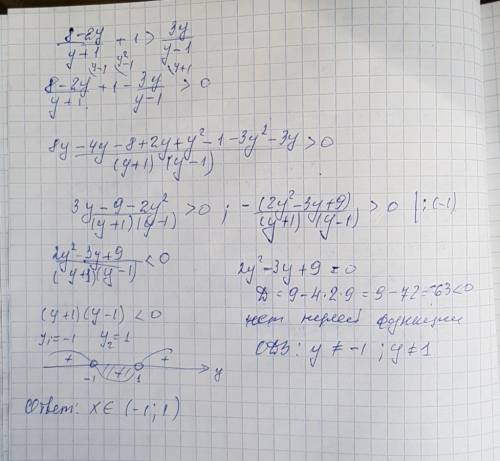 (8-2y)/(y+1) + 1 > 3y/(y-1)
(8-2y)/(y+1) + 1 - 3y/(y-1) > 0
y-1 y²-1 y+1
(8y-4y-8+2y+y²-1-3y²-3y)/((y+1)(y-1)) > 0
(3y-9-2y²)/((y+1)(y-1)) > 0 ; -(2y²-3y+9)/((y+1)(y-1)) > 0 | :(-1)
(2y²-3y+9)/((y+1)(y-1)) < 0
2y²-3y+9=0
D=9-4·2·9=9-72=-63<0
нет нулей функции
ОДЗ: y ≠ -1 ; y ≠ 1
(y+1)(y-1) < 0
y₁=-1 y₂=1
+ +
-1 1 y
Ответ: x∈(-1;1)